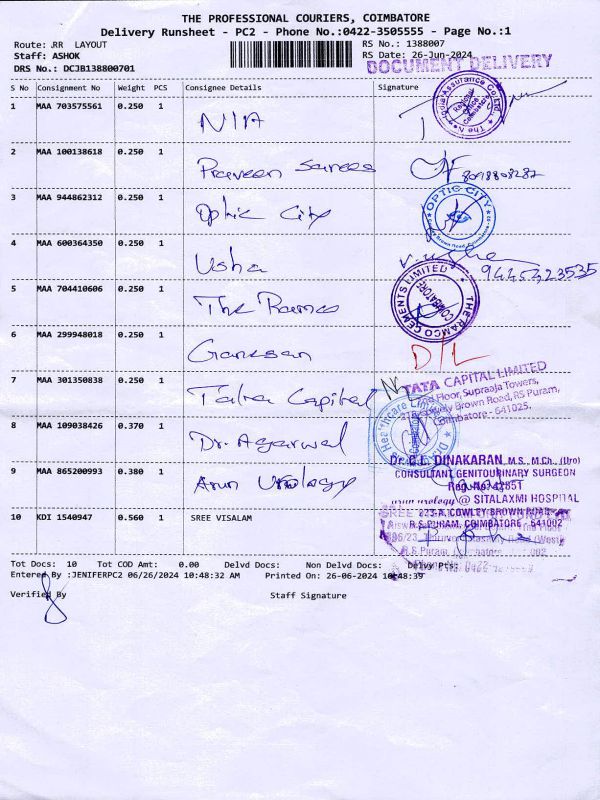 THE PROFESSIONAL COURIERS, COIMBATORE
Delivery Runsheet - PC2 - Phone No.:0422-3505555 - Page No.:1
Route: .RR LAYOUT
RS No.: 1388007
Staff: ASHOK
RS Date: 26-Jun-2024
DRS No.: DCJB138800701
DOCUMENT DELIVERY
S No Consignment No Weight PCS Consignee Details Signature
1 MAA 703575561 0.250 1 NIA
2 MAA 100138618 0.250 1 Praveen
3 MAA 944862312 0.250 1 Optic City
OPTIC CITY
4 MAA 600364350 0.250 1 Usha
5 MAA 704410606 0.250 1 The Ramco
THE RAMCO CEMENTS LIMITED
COIMBATORE
6 MAA 299948018 0.250 1 Ganesan
D/L
7 MAA 301350838 0.250 1 Tata Capital
TATA CAPITAL LIMITED
Floor, Supraaja Towers,
Cowley Brown Road, RS Puram,
Coimbatore - 641025.
8 MAA 109038426 0.370 1 Dr. Agarwal
Healthcare Limited
9 MAA 865200993 0.380 1 Arun Urology
DINAKARAN, M.S., M.Ch., (Uro)
CONSULTANT GENITOURINARY SURGEON
urology @ SITALAXMI HOSPITAL
223-A, COWLEY BROWN ROAD
R.S. PURAM, COIMBATORE 641002
10 KDI 1540947 0.560 1 SREE VISALAM
Tot Docs: 10 Tot COD Amt: 0.00 Delvd Docs: Non Delvd Docs: Delvy Pts:
Entered By :JENIFERPC2 06/26/2024 10:48:32 AM Printed On: 26-06-2024 10:48:39
Verified By Staff Signature